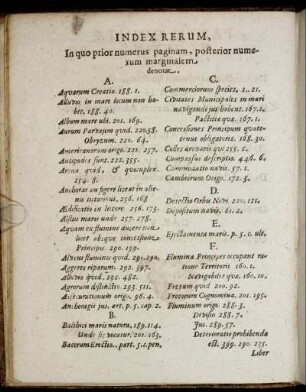 INDEX RERUM,
In quo prior numerus paginam, posterior nume-
rum marginalem
denotat.
A.
Aquarum Creatio. 188. 1.
Alluvio in mari locum non ha-
bet. 188. 40.
Album mare ubi. 201. 169.
Aurum Parvaim quid. 220.58.
Obryzum. 220. 64.
Americanorum origo. 221. 257.
Antipodes sunt. 222. 355.
Arena quid, & quotuplex.
254. 8.
Anchoras an figere liceat in alie-
no territorio. 256. 168
Ædificatio in littore. 256. 173.
Æstus maris unde 257. 278.
Aquam ex flumine ducere non
licet absque concessione
Principis. 290. 199.
Alveus fluminis quid. 291. 290.
Aggeres riparum. 292. 397.
Alluvio quid. 292. 482.
Agrorum distinctio. 293. 511.
Assecurationum origo. 96. 4.
Anchoragii jus. art. p. 5. cap. ult.
B.
Balthici maris natura, 189. 114.
Unde sic vocatur. 201. 163.
Bacorum Emctio. part. 5.c.pen.
C.
Commerciorum species. 1. 21.
Civitates Municipales in mari
navigandi jus habent. 167. 1.
Pactitia quæ. 167. 1.
Concessiones Principum quate-
nus obligatoriæ. 168. 30.
Colles arenarii qui 255. 2.
Compassus descriptio. 446. 6.
Commodatio navis. 57. 1.
Cambiorum Origo. 172. 5.
D.
Detectio Orbis Novi 220. 121.
Depositum navis. 61. 2.
E.
Ejectamenta maris. p. 5. c. ult.
F.
Flumina Principes occupant ra-
tione Territorii 160. 1.
Navigabile quæ. 160. 10.
Fretum quid 200. 92.
Fretorum Cognomina. 201. 195.
Fluminum origo. 288. 5.
Divisio 288. 7.
Jus. 289. 57.
Deterioratio prohibenda
est. 399. 290. 235.
Liber